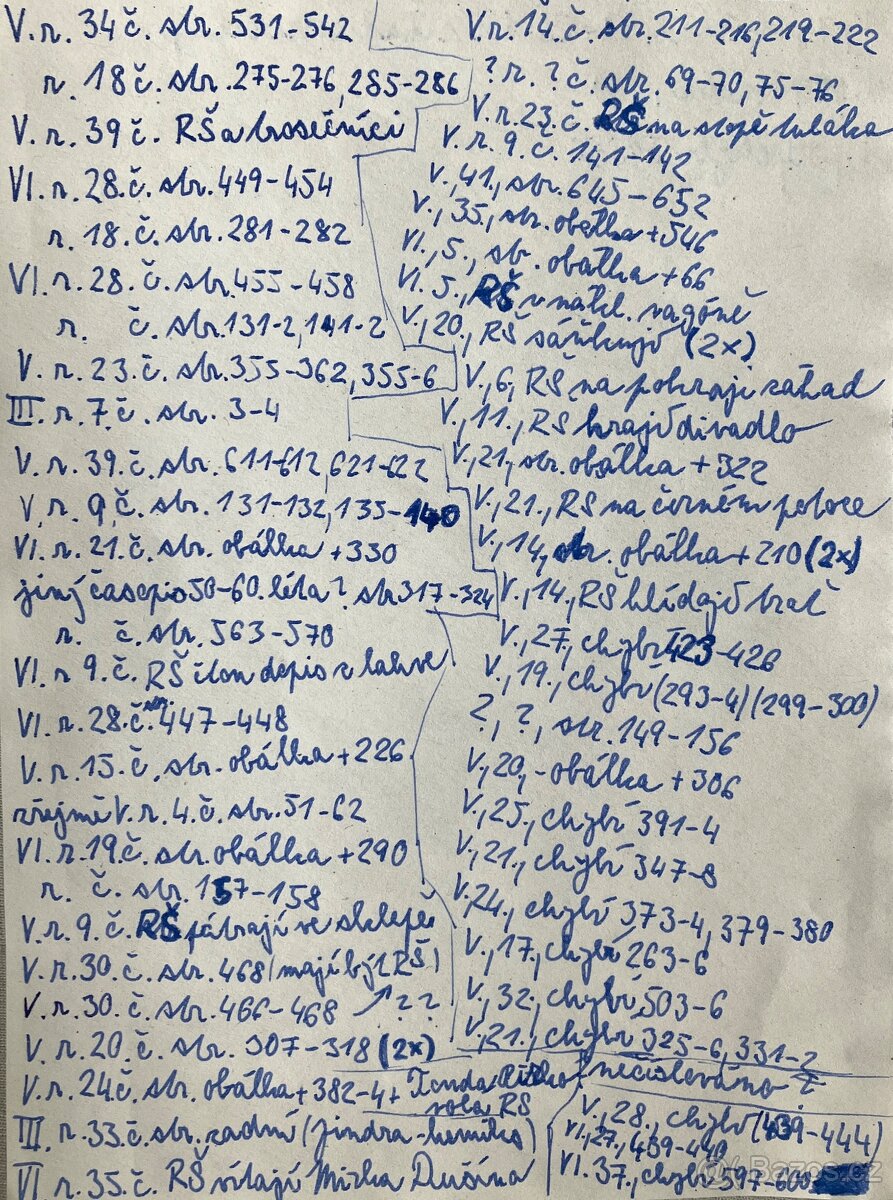 V. r. 34 č. str. 531-542
r. 18 č. str. 275-276, 285-286
V. r. 39 č. RŠ a trosečníci
VI. r. 28. č. str. 449-454
r. 18. č. str. 281-282
VI. r. 28. č. str. 455-458
r. č. str. 131-2, 141-2
V. r. 23. č. str. 355-362, 355-6
III. r. 7. č. str. 3-4
V. r. 39. č. str. 611-612, 621-622
V. r. 9. č. str. 131-132, 135-140
VI. r. 21. č. str. obálka + 330
jiný časopis 50-60. léta? str. 317-324
r. č. str. 563-570
VI. r. 9. č. RŠ člon dopis z lahve
VI. r. 28. č. str. 447-448
V. r. 15. č. str. obálka + 226
zřejmě V. r. 4. č. str. 51-62
VI. r. 19. č. str. obálka + 290
r. č. str. 157-158
V. r. 9. č. RŠ pátrají ve sklepě
V. r. 30. č. str. 468 (mají být RŠ)
V. r. 30. č. str. 466-468 ??
V. r. 20. č. str. 307-318 (2x)
V. r. 24. č. str. obálka + 382-4 + Tonda
volá RŠ
III. r. 33. č. str. zadní (Jindra-komiks)
VI. r. 35. č. RŠ vítají Mirka Dušína
V. r. 14. č. str. 211-216, 219-222
? r. ? č. str. 69-70, 75-76
V. r. 23. č. RŠ na stopě tuláka
V. r. 9. č. 141-142
V., 41., str. 645-652
V., 35., str. obálka + 546
VI., 5., str. obálka + 66
VI. 5., RŠ v nákl. vagóně
V., 20., RŠ sáňkují (2x)
V., 6., RŠ na pokraji záhad
V., 11., RŠ hrají divadlo
V., 21., str. obálka + 322
V., 21., RŠ na černém potoce
V., 14., str. obálka + 210 (2x)
V., 14., RŠ hlídají trať
V., 27., chybí 423-426
V., 19., chybí (293-4) (299-300)
?, ?, str. 149-156
V., 20., - obálka + 306
V., 25., chybí 391-4
V., 21., chybí 347-8
V., 24., chybí 373-4, 379-380
V., 17., chybí 263-6
V., 32., chybí 503-6
V., 21., chybí 325-6, 331-2
nečíslováno
V., 28., chybí (439-444)
VI., 27., 439-440
VI. 37., chybí 597-600
Bazos.cz